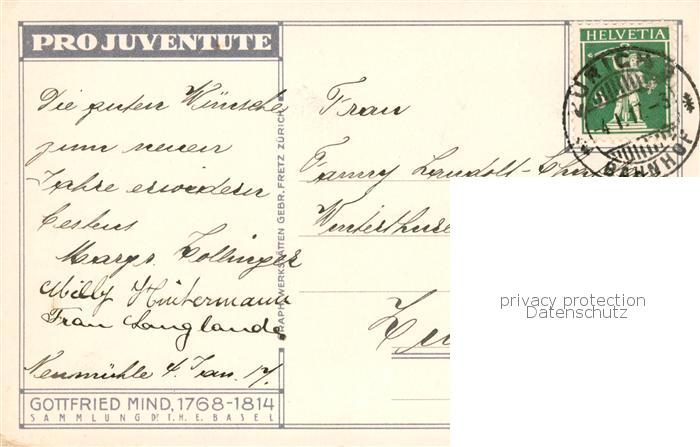 PRO JUVENTUTE
HELVETIA
ZÜRICH
BAHNHOF
Die guten Wünsche
zum neuen
Jahre erwiedern
bestens
Margr. Zollinger
Milly Hintermann
Frau Langlande
Neumühle 4. Jan. 17.
GOTTFRIED MIND, 1768-1814
SAMMLUNG DR. TH. E. BASEL
GRAPH. WERKSTÄTTEN GEBR. FRETZ ZÜRICH
Frau
Fanny Landolt-
privacy protection
Datenschutz